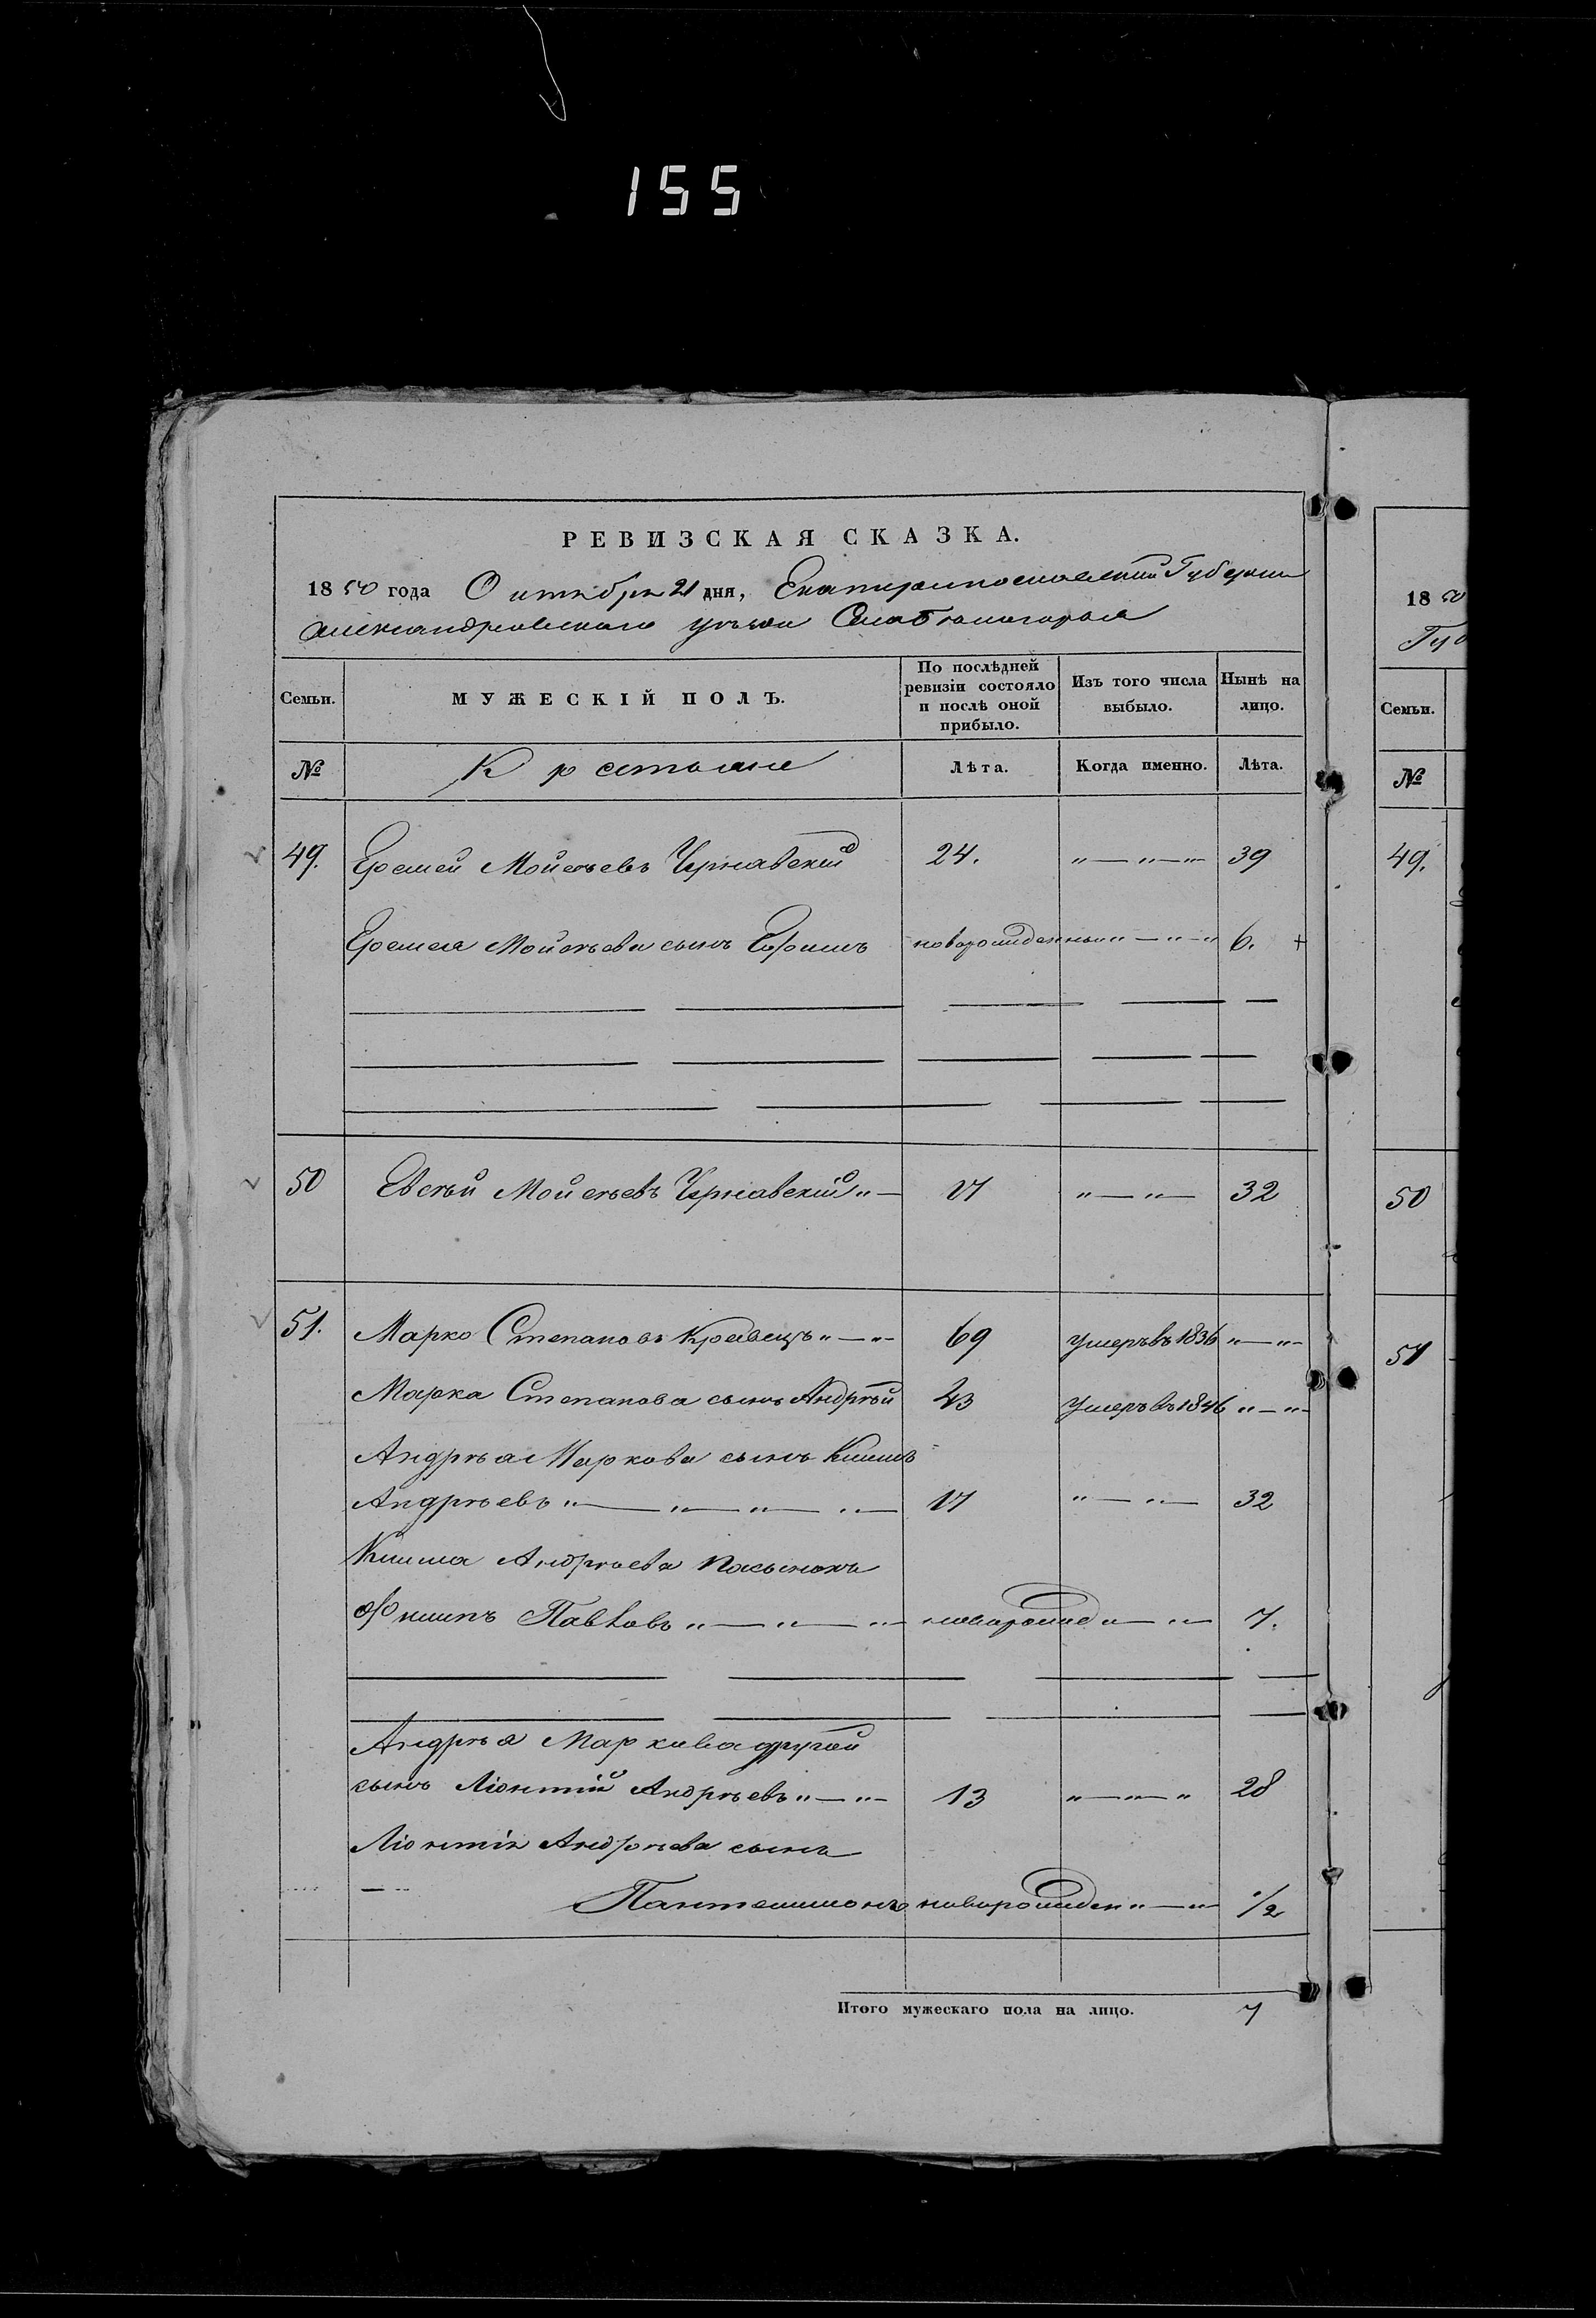 155
РЕВИЗСКАЯ СКАЗКА.
1850 года Октября 21 дня, Екатеринославской Губернии
Александровского уезда
Семьи.
МУЖЕСКІЙ ПОЛЪ.
По послѣдней ревизіи состояло и послѣ оной прибыло.
Изъ того числа выбыло.
Нынѣ на лицо.
№
Крестьяне
Лѣта.
Когда именно.
Лѣта.
49. Еремей Мойсѣевъ Чернавскій 24. "—"—"— 39
Еремея Мойсѣева сынъ Ефимъ новорожденный "—"—" 6. +
50 Евсѣй Мойсѣевъ Чернавскій "— 17 "—"— 32
51. Марко Степановъ Кравецъ "—"— 69 умеръ въ 1836 "—"—
Марка Степанова сынъ Андрѣй 43 умеръ въ 1846 "—"—
Андрѣя Маркова сынъ Климъ
Андрѣевъ "—"—"—"— 17 "—"— 32
Клима Андрѣева пасынокъ
Павловъ "—"—"— новорожд "—"— 7.
Андрѣя Маркова другой
сынъ Ліонтій Андрѣевъ "—"— 13 "—"—" 28
Ліонтія Андрѣева сынъ
Пантелимонъ новорожден "—"— 1/2
Итого мужескаго пола на лицо. 7
1850
Губ
Семьи.
№
49.
50
51